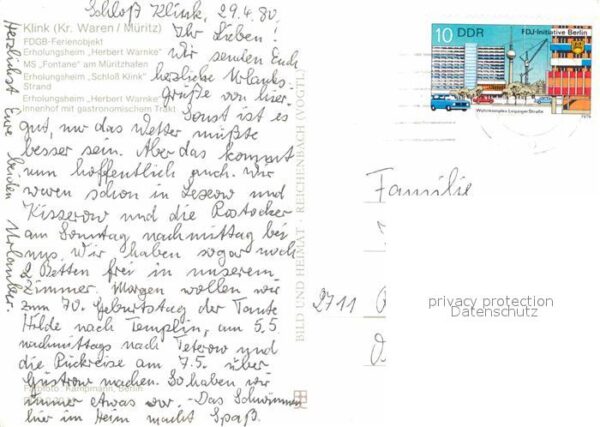 Schloß Klink, 29.4.80
Ihr Lieben!
Wir senden Euch
herzliche Urlaubs-
grüße von hier.
Sonst ist es
gut, nur das Wetter müßte
besser sein. Aber das kommt
nun hoffentlich auch. Wir
waren schon in und
und die Rostocker
am Sonntag nachmittag bei
uns. Wir haben sogar noch
2 Betten frei in unserem
Zimmer. Morgen wollen wir
zum 70. Geburtstag der Tante
Hilde nach Templin, am 5.5.
nachmittags nach Teterow und
die Rückreise am 7.5. über
Güstrow machen. So haben wir
immer etwas vor. - Das Schwimmen
hier im Heim macht Spaß.
Herzlichst Eure beiden Urlauber.
Klink (Kr. Waren / Müritz)
FDGB-Ferienobjekt
Erholungsheim „Herbert Warnke"
MS „Fontane" am Müritzhafen
Erholungsheim „Schloß Klink"
Strand
Erholungsheim „Herbert Warnke"
Innenhof mit gastronomischem Trakt
BILD UND HEIMAT · REICHENBACH (VOGTL)
10 DDR
FDJ-Initiative Berlin
Wohnkomplex Leipziger Straße
1979
Familie
2711
privacy protection
Datenschutz